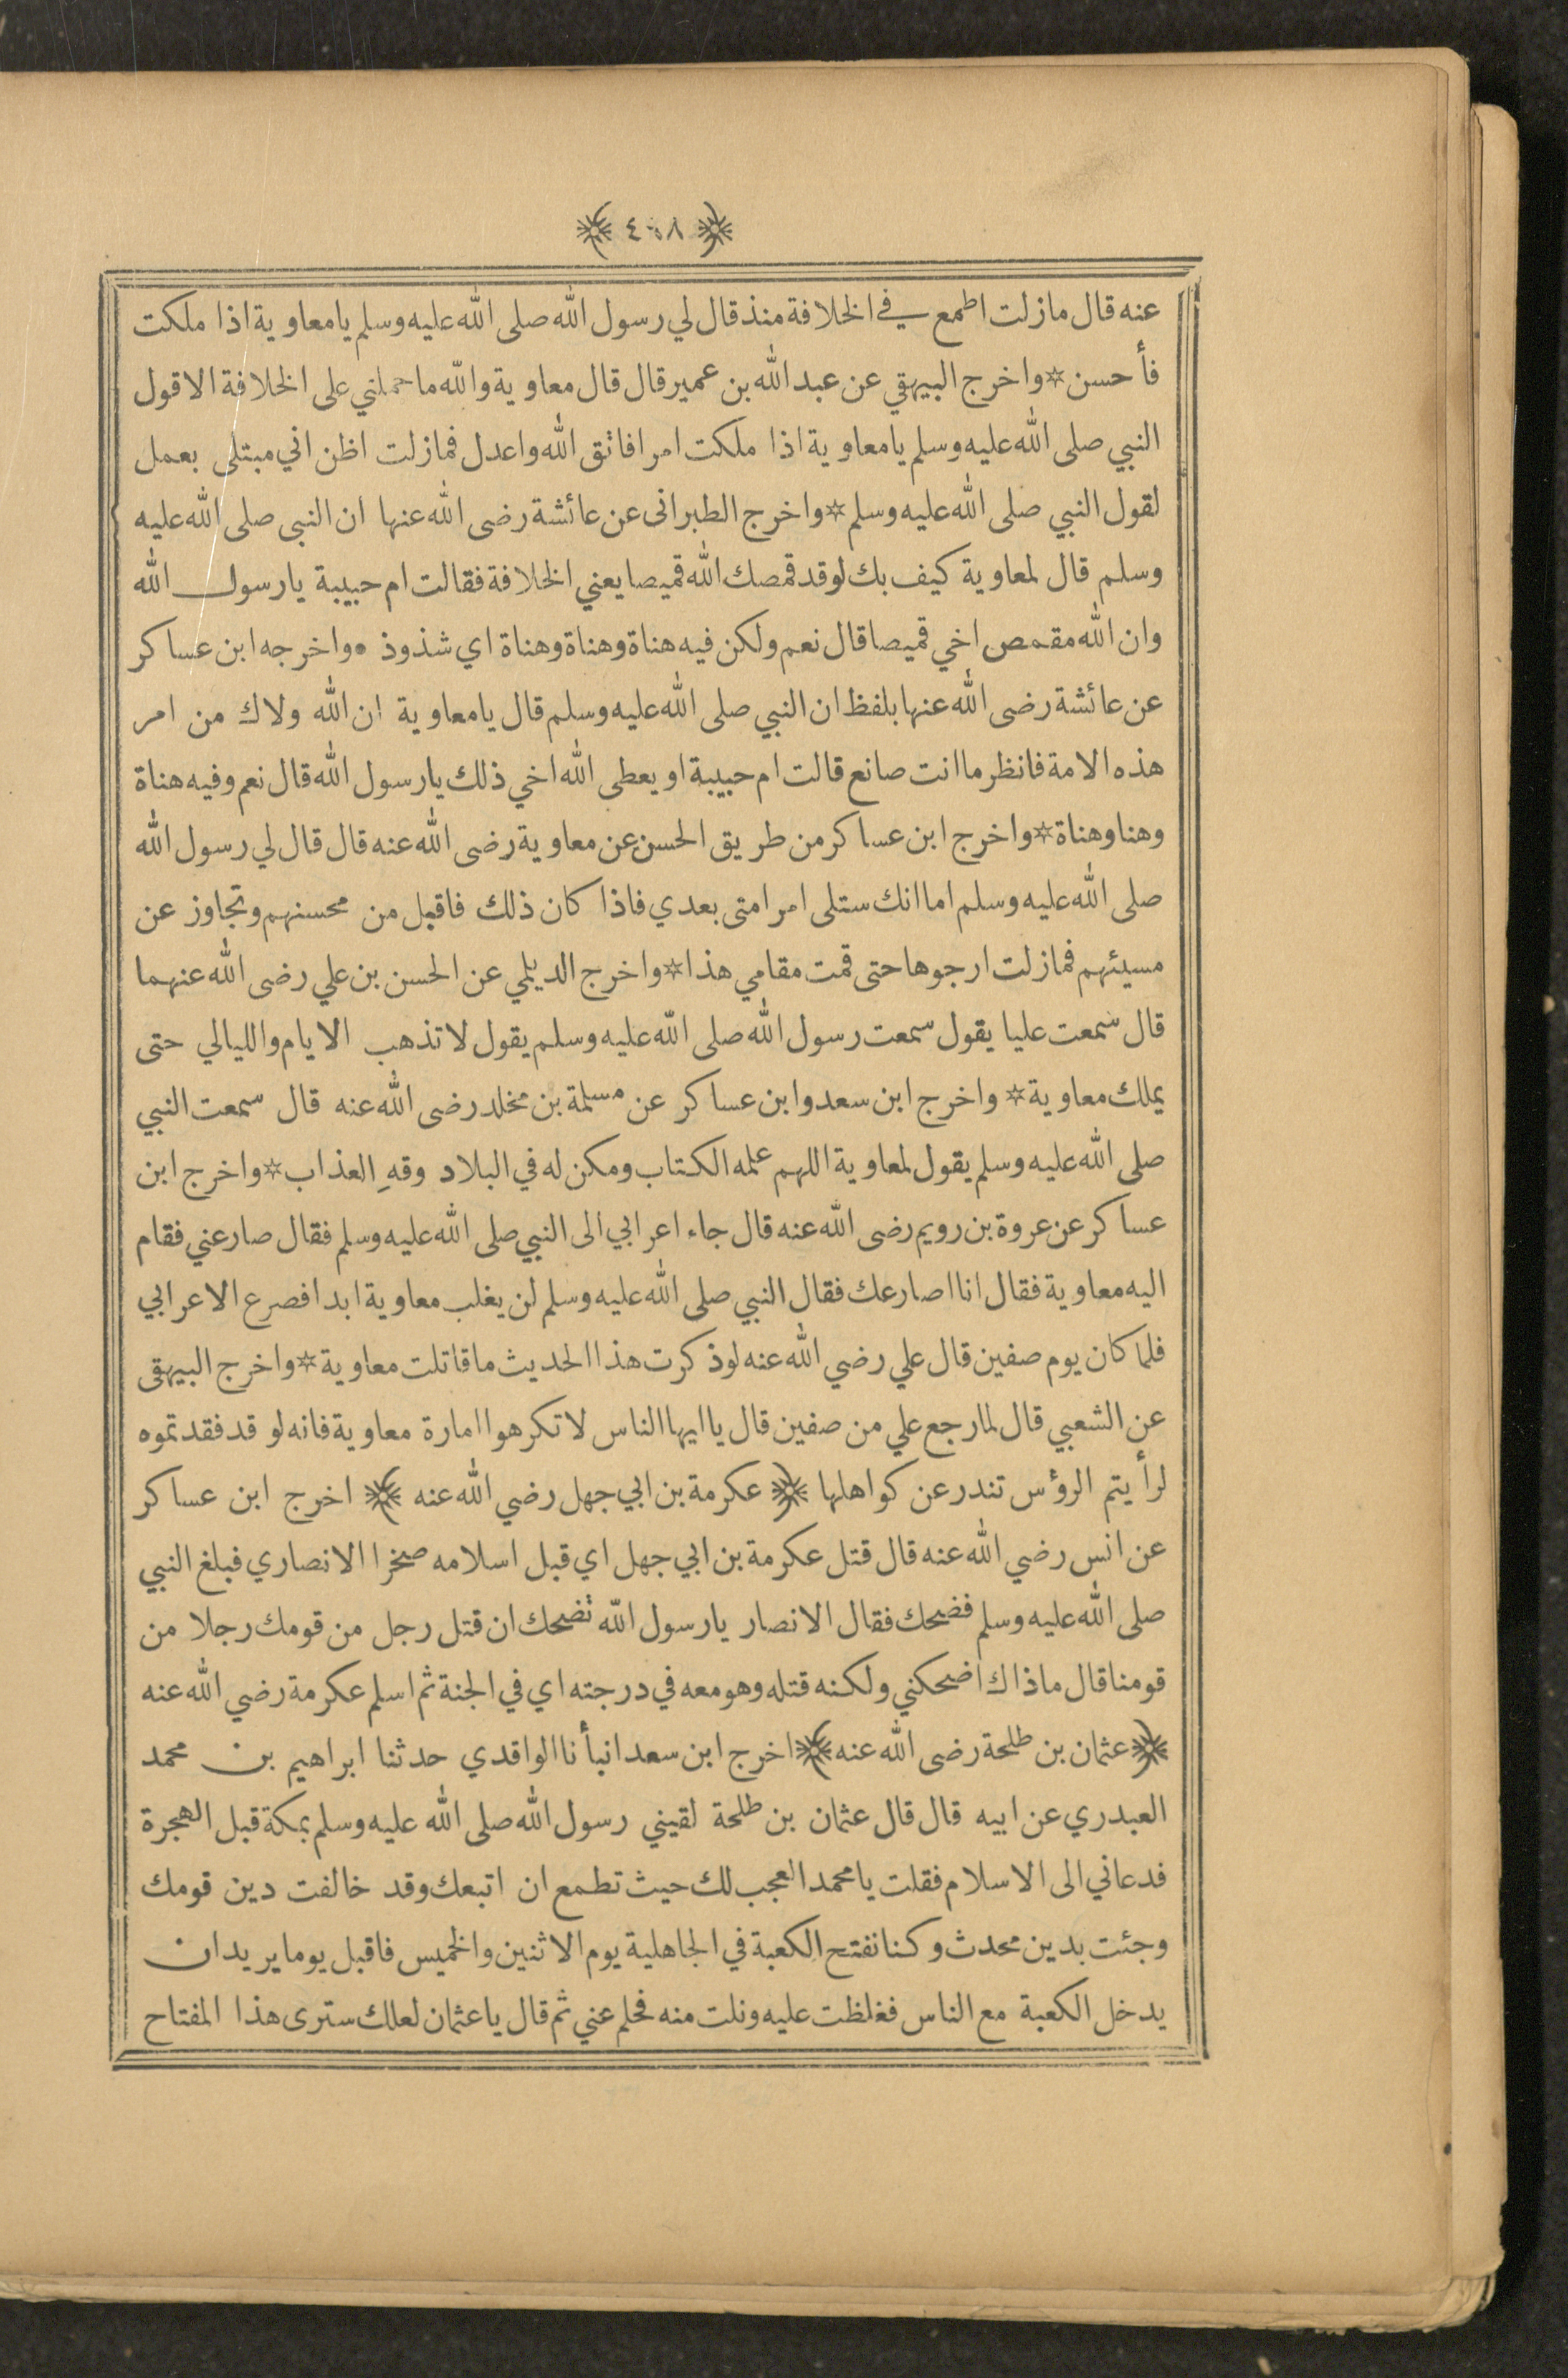 عنه قال مازلت اطمع في الخلافة منذ قال لي رسول الله صلى الله عليه وسلم يا معاوية اذا ملكت
فأحسن * واخرج البيهقي عن عبد الله بن عمير قال قال معاوية والله ما حملني على الخلافة الا قول
النبي صلى الله عليه وسلم يا معاوية اذا ملكت امرا فاتق الله واعدل فمازلت اظن اني مبتلى بعمل
لقول النبي صلى الله عليه وسلم * واخرج الطبراني عن عائشة رضى الله عنها ان النبي صلى الله عليه
وسلم قال لمعاوية كيف بك لو قد قمصك الله قميصا يعني الخلافة فقالت ام حبيبة يا رسول الله
وان الله مقمص اخي قميصا قال نعم ولكن فيه هناة وهناة وهناة اي شذوذ • واخرجه ابن عساكر
عن عائشة رضى الله عنها بلفظ ان النبي صلى الله عليه وسلم قال يا معاوية ان الله ولاك من امر
هذه الامة فانظر ما انت صانع قالت ام حبيبة او يعطى الله اخي ذلك يا رسول الله قال نعم وفيه هناة
وهنا وهناة * واخرج ابن عساكر من طريق الحسن عن معاوية رضى الله عنه قال قال لي رسول الله
صلى الله عليه وسلم اما انك ستلى امر امتى بعدي فاذا كان ذلك فاقبل من محسنهم وتجاوز عن
مسيئهم فمازلت ارجوها حتى قمت مقامي هذا * واخرج الديلمي عن الحسن بن علي رضى الله عنهما
قال سمعت عليا يقول سمعت رسول الله صلى الله عليه وسلم يقول لا تذهب الايام والليالي حتى
يملك معاوية * واخرج ابن سعد وابن عساكر عن مسلمة بن مخلد رضى الله عنه قال سمعت النبي
صلى الله عليه وسلم يقول لمعاوية اللهم علمه الكتاب ومكن له في البلاد وقهِ العذاب * واخرج ابن
عساكر عن عروة بن رويم رضى الله عنه قال جاء اعرابي الى النبي صلى الله عليه وسلم فقال صارعني فقام
اليه معاوية فقال انا اصارعك فقال النبي صلى الله عليه وسلم لن يغلب معاوية ابدا فصرع الاعرابي
فلما كان يوم صفين قال علي رضي الله عنه لو ذكرت هذا الحديث ما قاتلت معاوية * واخرج البيهقى
عن الشعبي قال لما رجع علي من صفين قال يا ايها الناس لا تكرهوا امارة معاوية فانه لو قد فقدتموه
لرأيتم الرؤس تندر عن كواهلها ﴿ عكرمة بن ابي جهل رضي الله عنه ﴾ اخرج ابن عساكر
عن انس رضي الله عنه قال قتل عكرمة بن ابي جهل اي قبل اسلامه صخرا الانصاري فبلغ النبي
صلى الله عليه وسلم فضحك فقال الانصار يا رسول الله تضحك ان قتل رجل من قومك رجلا من
قومنا قال ما ذاك اضحكني ولكنه قتله وهو معه في درجته اي في الجنة ثم اسلم عكرمة رضي الله عنه
﴿ عثمان بن طلحة رضى الله عنه ﴾ اخرج ابن سعد انبأنا الواقدي حدثنا ابراهيم بن محمد
العبدري عن ابيه قال قال عثمان بن طلحة لقيني رسول الله صلى الله عليه وسلم بمكة قبل الهجرة
فدعاني الى الاسلام فقلت يا محمد العجب لك حيث تطمع ان اتبعك وقد خالفت دين قومك
وجئت بدين محدث وكنا نفتح الكعبة في الجاهلية يوم الاثنين والخميس فاقبل يوما يريد ان
يدخل الكعبة مع الناس فغلظت عليه ونلت منه فحلم عني ثم قال يا عثمان لعلك سترى هذا المفتاح